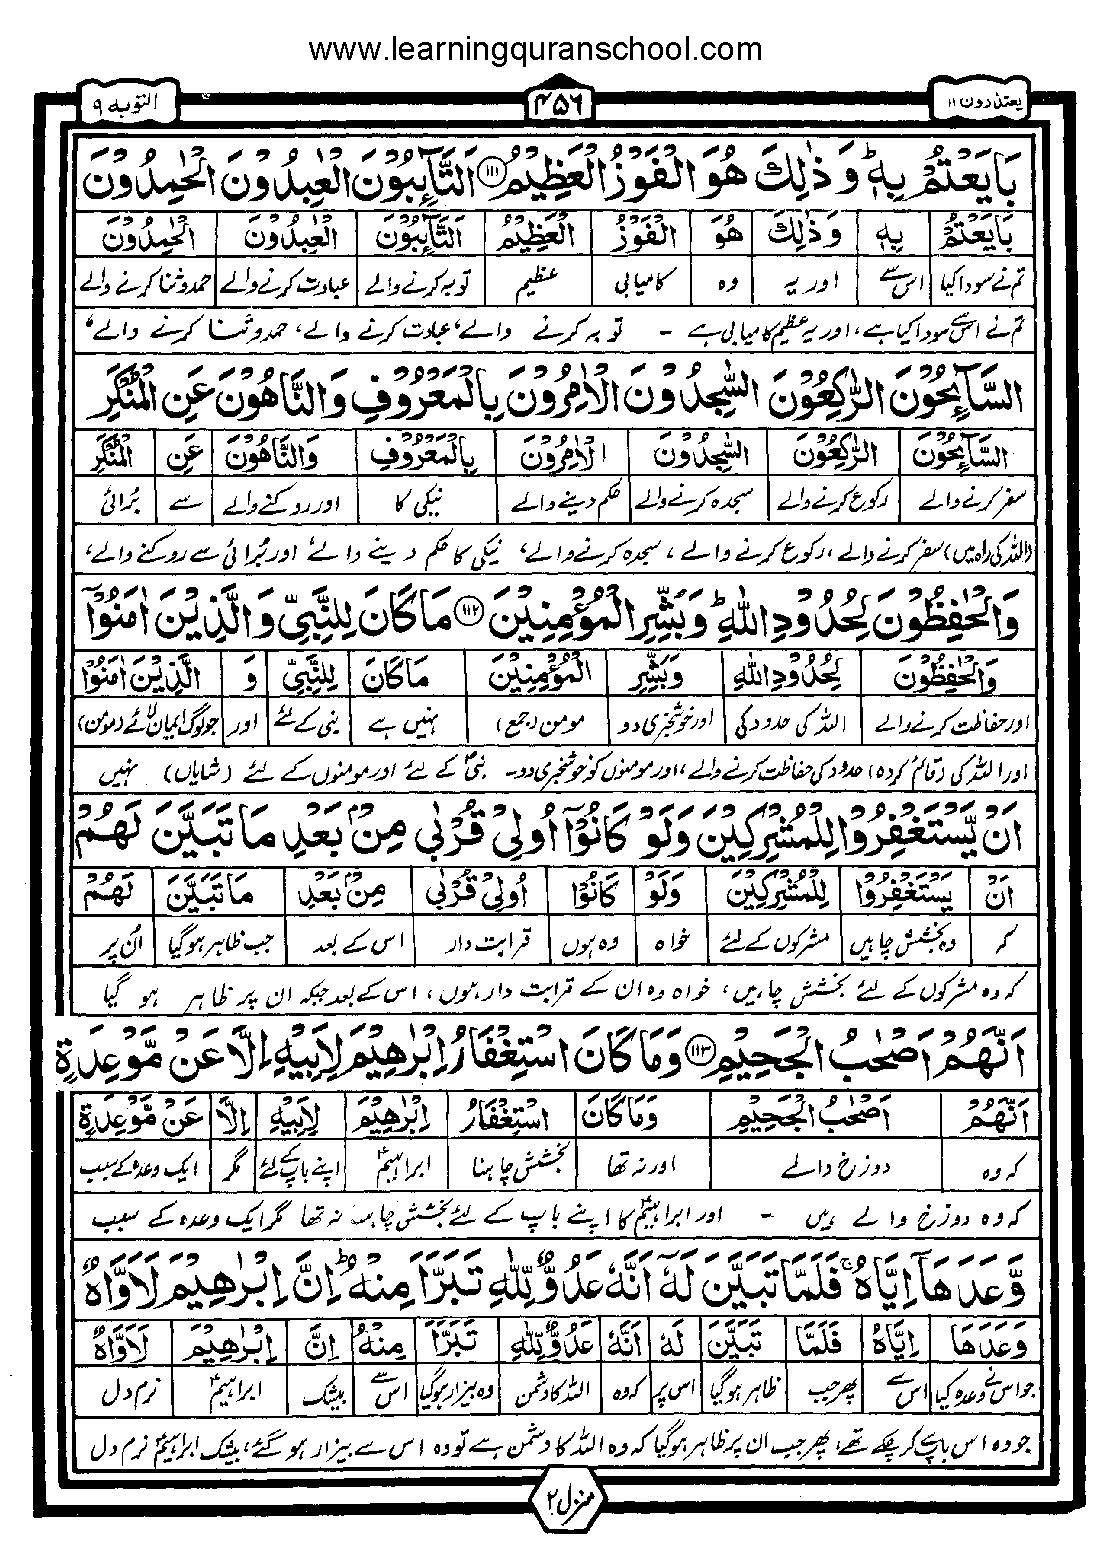 www.learningquranschool.com
یعتذرون ۱۱
۴۵۶
التوبہ ۹
بَايَعْتُمْ بِهٖ ؕ وَ ذٰلِكَ هُوَ الْفَوْزُ الْعَظِيْمُ ۱۱۱ اَلتَّآئِبُوْنَ الْعٰبِدُوْنَ الْحٰمِدُوْنَ
بَايَعْتُمْ بِهٖ وَذٰلِكَ هُوَ الْفَوْزُ الْعَظِيْمُ اَلتَّآئِبُوْنَ الْعٰبِدُوْنَ الْحٰمِدُوْنَ
تم نے سودا کیا اس سے اور یہ وہ کامیابی عظیم توبہ کرنے والے عبادت کرنے والے حمد و ثنا کرنے والے
تم نے اس سے سودا کیا ہے، اور یہ عظیم کامیابی ہے - توبہ کرنے والے، عبادت کرنے والے، حمد و ثنا کرنے والے،
السَّآئِحُوْنَ الرّٰكِعُوْنَ السّٰجِدُوْنَ الْاٰمِرُوْنَ بِالْمَعْرُوْفِ وَالنَّاهُوْنَ عَنِ الْمُنْكَرِ
السَّآئِحُوْنَ الرّٰكِعُوْنَ السّٰجِدُوْنَ الْاٰمِرُوْنَ بِالْمَعْرُوْفِ وَالنَّاهُوْنَ عَنِ الْمُنْكَرِ
سفر کرنے والے رکوع کرنے والے سجدہ کرنے والے حکم دینے والے نیکی کا اور روکنے والے سے برائی
(اللہ کی راہ میں) سفر کرنے والے، رکوع کرنے والے، سجدہ کرنے والے، نیکی کا حکم دینے والے، اور برائی سے روکنے والے،
وَالْحٰفِظُوْنَ لِحُدُوْدِ اللّٰهِ ؕ وَبَشِّرِ الْمُؤْمِنِيْنَ ۱۱۲ مَا كَانَ لِلنَّبِيِّ وَ الَّذِيْنَ اٰمَنُوْۤا
وَالْحٰفِظُوْنَ لِحُدُوْدِ اللّٰهِ وَبَشِّرِ الْمُؤْمِنِيْنَ مَا كَانَ لِلنَّبِيِّ وَ الَّذِيْنَ اٰمَنُوْا
اور حفاظت کرنے والے اللہ کی حدود کی اور خوشخبری دو مومن (جمع) نہیں ہے نبی کے لئے اور جو لوگ ایمان لائے (مومن)
اور اللہ کی (قائم کردہ) حدود کی حفاظت کرنے والے، اور مومنوں کو خوشخبری دو۔ نبیؐ کے لئے اور مومنوں کے لئے (شایاں) نہیں
اَنْ يَّسْتَغْفِرُوْا لِلْمُشْرِكِيْنَ وَلَوْ كَانُوْۤا اُولِيْ قُرْبٰى مِنْۢ بَعْدِ مَا تَبَيَّنَ لَهُمْ
اَنْ يَسْتَغْفِرُوْا لِلْمُشْرِكِيْنَ وَلَوْ كَانُوْا اُولِيْ قُرْبٰى مِنْۢ بَعْدِ مَا تَبَيَّنَ لَهُمْ
کہ وہ بخشش چاہیں مشرکوں کے لئے خواہ وہ ہوں قرابت دار اس کے بعد جب ظاہر ہو گیا ان پر
کہ وہ مشرکوں کے لئے بخشش چاہیں، خواہ وہ ان کے قرابت دار ہوں، اس کے بعد جبکہ ان پر ظاہر ہو گیا
اَنَّهُمْ اَصْحٰبُ الْجَحِيْمِ ۱۱۳ وَمَا كَانَ اسْتِغْفَارُ اِبْرٰهِيْمَ لِاَبِيْهِ اِلَّا عَنْ مَّوْعِدَةٍ
اَنَّهُمْ اَصْحٰبُ الْجَحِيْمِ وَمَا كَانَ اسْتِغْفَارُ اِبْرٰهِيْمَ لِاَبِيْهِ اِلَّا عَنْ مَّوْعِدَةٍ
کہ وہ دوزخ والے اور نہ تھا بخشش چاہنا ابراہیمؑ اپنے باپ کے لئے مگر ایک وعدہ کے سبب
کہ وہ دوزخ والے ہیں - اور ابراہیمؑ کا اپنے باپ کے لئے بخشش چاہنا نہ تھا مگر ایک وعدہ کے سبب
وَّعَدَهَاۤ اِيَّاهُ ۚ فَلَمَّا تَبَيَّنَ لَهٗۤ اَنَّهٗ عَدُوٌّ لِّلّٰهِ تَبَرَّاَ مِنْهُ ؕ اِنَّ اِبْرٰهِيْمَ لَاَوَّاهٌ
وَعَدَهَا اِيَّاهُ فَلَمَّا تَبَيَّنَ لَهٗ اَنَّهٗ عَدُوٌّ لِّلّٰهِ تَبَرَّاَ مِنْهُ اِنَّ اِبْرٰهِيْمَ لَاَوَّاهٌ
جو اس نے وعدہ کیا اس سے پھر جب ظاہر ہو گیا اس پر کہ وہ اللہ کا دشمن وہ بیزار ہو گیا اس سے بیشک ابراہیمؑ نرم دل
جو وہ اس باپ سے کر چکے تھے، پھر جب ان پر ظاہر ہو گیا کہ وہ اللہ کا دشمن ہے تو وہ اس سے بیزار ہو گئے، بیشک ابراہیمؑ نرم دل
منزل ۲